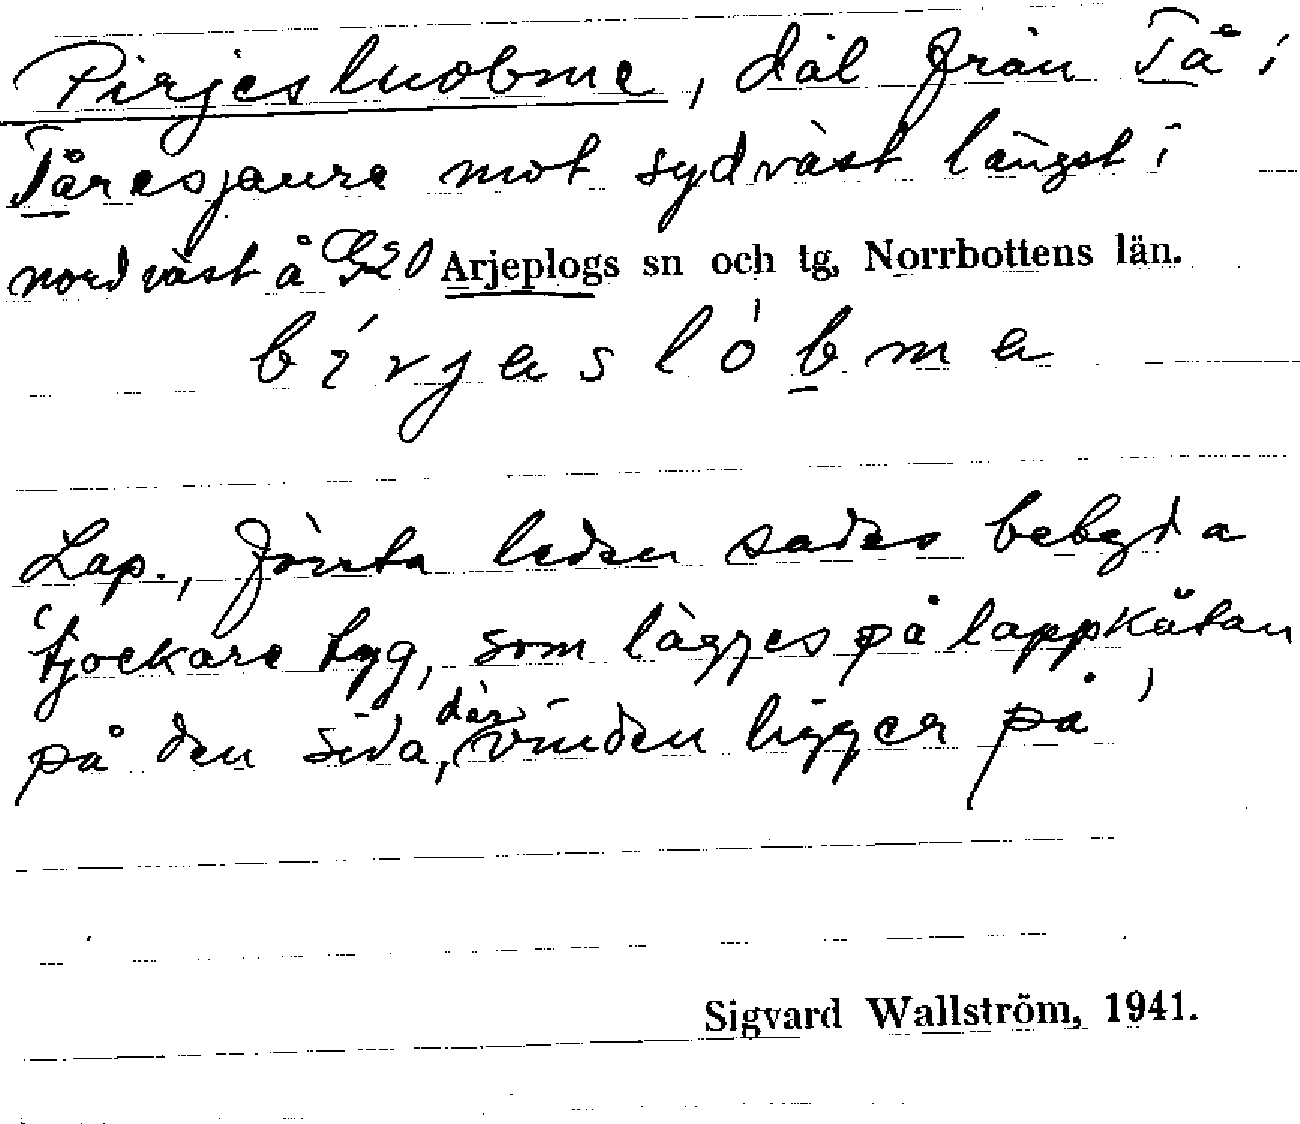 Pirjesluobme, däl från Tå i
Tåresjaure mot sydväst längst i
nordväst å G20 Arjeplogs sn och tg, Norrbottens län.
birjesló'bme
Lap., första leden sades betyda
tjockare tyg, som lägges på lappkåtan
på den sida, där vinden ligger på
Sigvard Wallström, 1941.